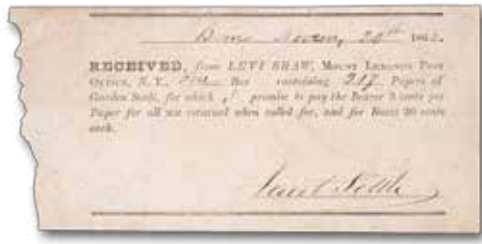 20th 186
RECEIVED, from LEVI SHAW, MOUNT LEBANON POST
OFFICE, N. Y., One Box containing 217 Papers of
Garden Seeds, for which I promise to pay the Bearer 3 cents per
Paper for all not returned when called for, and for Boxes 30 cents
each.